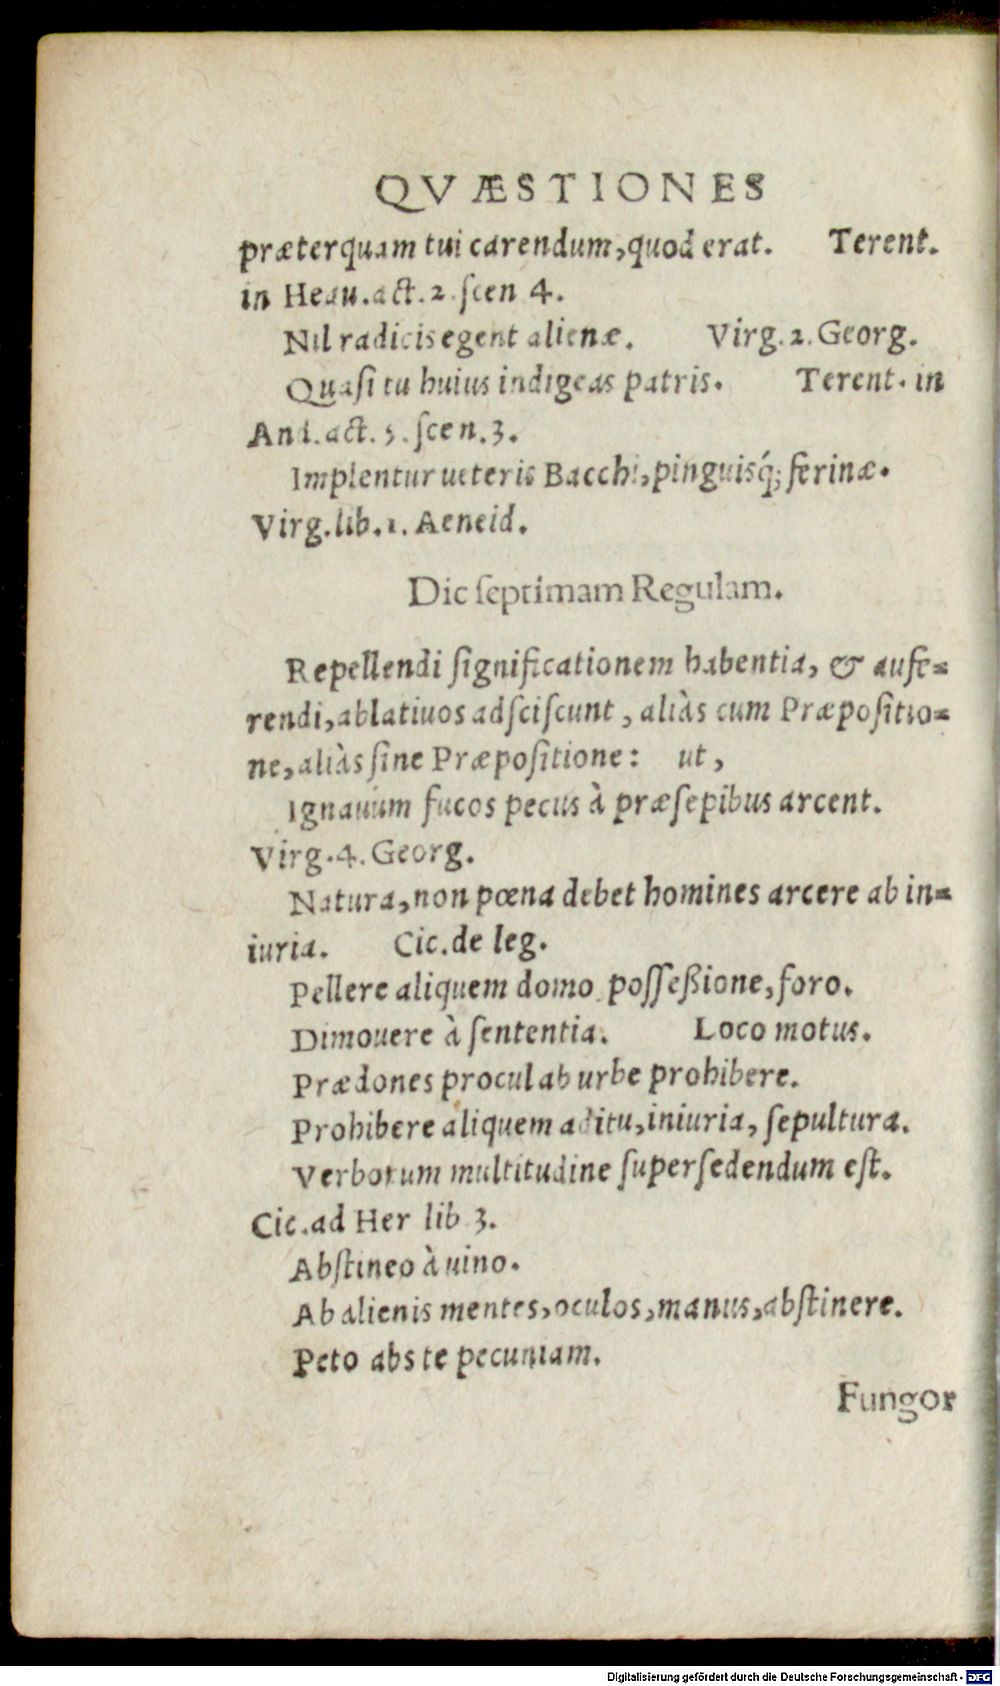 QVÆSTIONES
præterquam tui carendum, quod erat. Terent.
in Heau. act. 2. scen 4.
Nil radicis egent alienæ. Virg. 2. Georg.
Quasi tu huius indigeas patris. Terent. in
And. act. 5. scen. 3.
Implentur ueteris Bacchi, pinguisq́; ferinæ.
Virg. lib. 1. Aeneid.
Dic septimam Regulam.
Repellendi significationem habentia, & aufe-
rendi, ablatiuos adsciscunt, aliàs cum Præpositio-
ne, aliàs sine Præpositione: ut,
Ignauum fucos pecus à præsepibus arcent.
Virg. 4. Georg.
Natura, non pœna debet homines arcere ab in-
iuria. Cic. de leg.
Pellere aliquem domo, posseßione, foro.
Dimouere à sententia. Loco motus.
Prædones procul ab urbe prohibere.
Prohibere aliquem aditu, iniuria, sepultura.
Verborum multitudine supersedendum est.
Cic. ad Her lib 3.
Abstineo à uino.
Ab alienis mentes, oculos, manus, abstinere.
Peto abs te pecuniam.
Fungor
Digitalisierung gefördert durch die Deutsche Forschungsgemeinschaft - DFG